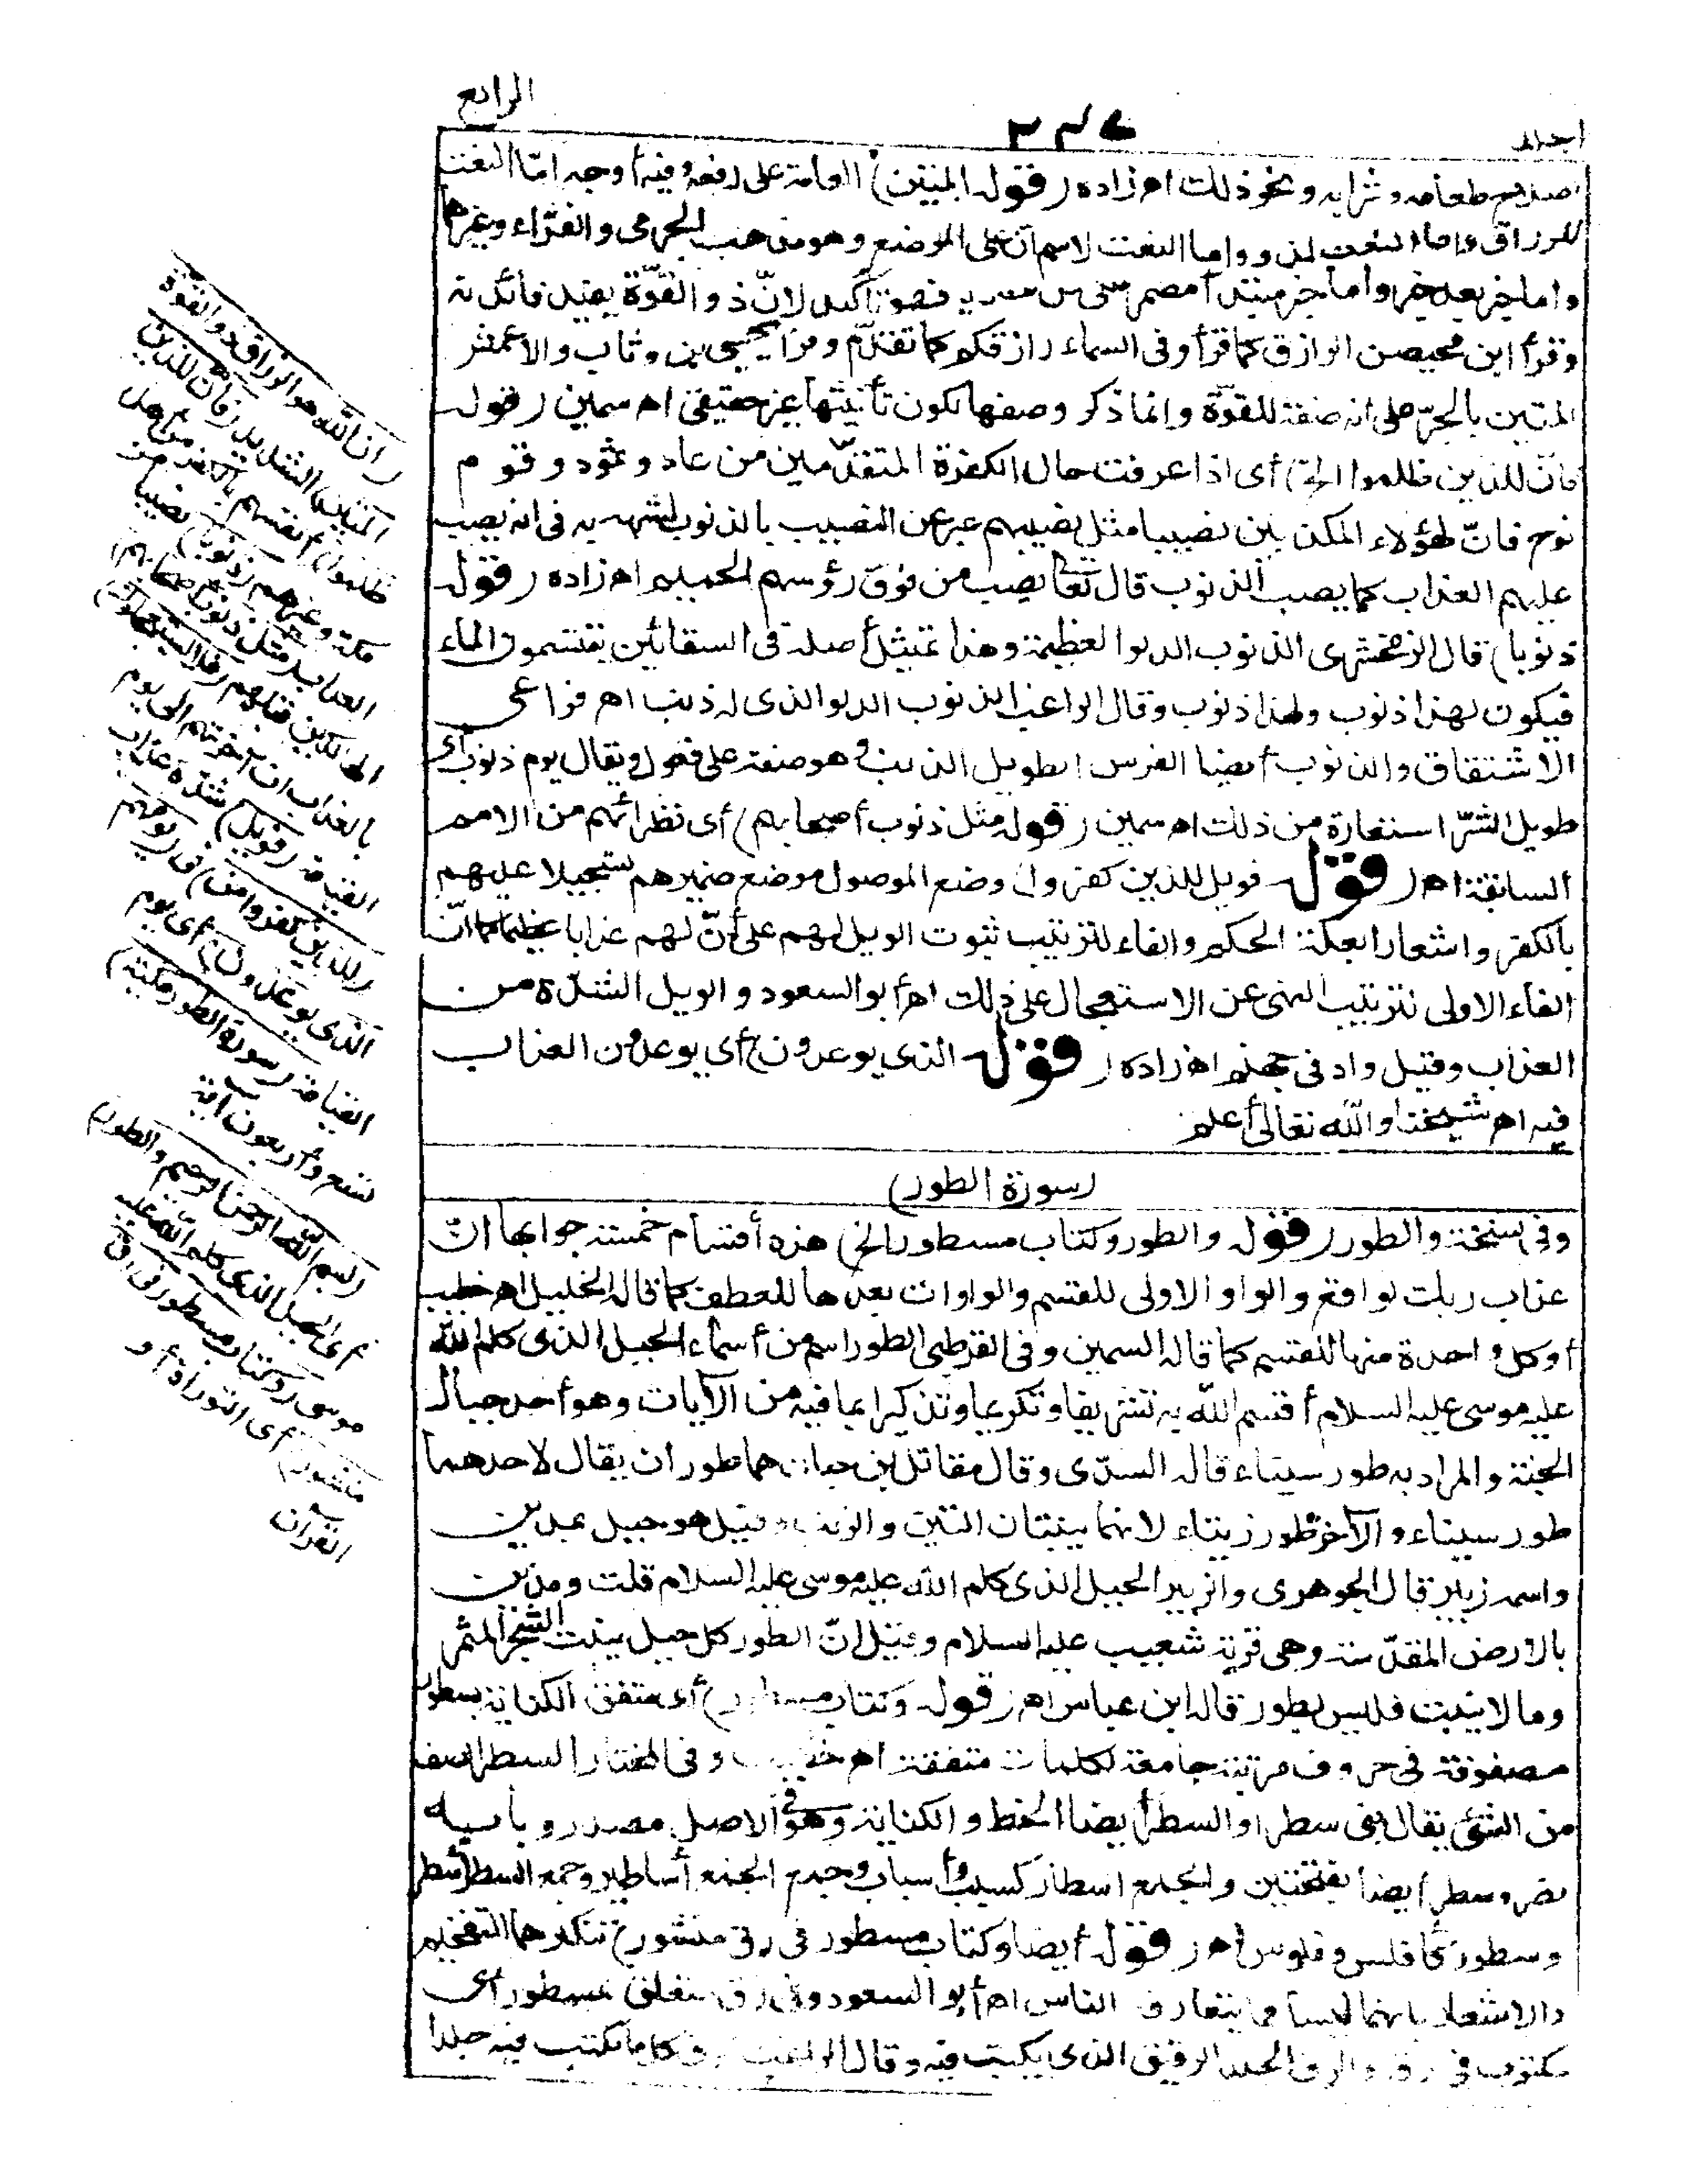 الرابع
٣٤٧
اصلاح طعامه وشرابه ونحو ذلك اه زاده (قوله المتين) العامة على رفعه وفيه أوجه امّا النعت
للرزاق واما النعت لذو واما النعت لاسم انّ على الموضع وهو مذهب الجرمى والفرّاء وغيرهما
واما خبر بعد خبر واما خبر مبتدأ مضمر فهو تأكيد لانّ ذو القوّة يفيد فائدته
وقرأ ابن محيصن الرازق كما قرأ وفى السماء رازقكم كما تقدّم وقرأ يحيى بن وثاب والاعمش
المتين بالجرّ على انه صفة للقوّة وانما ذكر وصفها لكون تأنيثها غير حقيقى اه سمين (قوله
فانّ للذين ظلموا الخ) أى اذا عرفت حال الكفرة المتقدّمين من عاد وثمود وقوم
نوح فانّ لهؤلاء المكذبين نصيبا مثل نصيبهم عبر عن النصيب بالذنوب لشبهه به فى انه يصب
عليهم العذاب كما يصب الذنوب قال تعالى يصب من فوق رؤسهم الحميم اه زاده (قوله
ذنوبا) قال الزمخشرى الذنوب الدلو العظيمة وهذا تمثيل أصله فى السقائين يقتسمون الماء
فيكون لهذا ذنوب ولهذا ذنوب وقال الراغب الذنوب الدلو الذى له ذنب اه فراعى
الاشتقاق والذنوب أيضا الفرس الطويل الذنب وهو صفة على فعول ويقال يوم ذنوب أى
طويل الشرّ استعارة من ذلك اه سمين (قوله مثل ذنوب أصحابهم) أى نظرائهم من الامم
السابقة اه (قوله فويل للذين كفروا) وضع الموصول موضع ضميرهم تسجيلا عليهم
بالكفر واشعارا بعلة الحكم والفاء لترتيب ثبوت الويل لهم على أنّ لهم عذابا عظيما كما انّ
الفاء الاولى لترتيب النهى عن الاستعجال على ذلك اه أبو السعود والويل الشدّة من
العذاب وقيل واد فى جهنم اه زاده (قوله الذى يوعدون) أى يوعدون العذاب
فيه اه شيخنا والله تعالى أعلم
(سورة الطور)
وفى نسخة والطور (قوله والطور وكتاب مسطور الخ) هذه أقسام خمسة جوابها انّ
عذاب ربك لواقع والواو الاولى للقسم والواوات بعدها للعطف كما قاله الخليل اه خطيب
أو كل واحدة منها للقسم كما قاله السمين وفى القرطبى الطور اسم من أسماء الجبل الذى كلم الله
عليه موسى عليه السلام أقسم الله به تشريفا وتكريما وتذكيرا بما فيه من الآيات وهو أحد جبال
الجنة والمراد به طور سيناء قاله السدّى وقال مقاتل بن حيان هما طوران يقال لاحدهما
طور سيناء والآخر طور زيتاء لانهما ينبتان التين والزيتون وقيل هو جبل بمدين
واسمه زبير قال الجوهرى والزبير الجبل الذى كلم الله عليه موسى عليه السلام قلت ومدين
بالارض المقدّسة وهى قرية شعيب عليه السلام وقيل انّ الطور كل جبل ينبت الشجر المثمر
وما لا ينبت فليس بطور قاله ابن عباس اه (قوله وكتاب مسطور) أى متفق الكتابة بسطور
مصفوفة فى حروف مرتبة جامعة لكلمات متفقة اه خطيب وفى المختار السطر الصف
من الشئ يقال بنى سطرا والسطر أيضا الخط والكتابة وهو فى الاصل مصدر وبابه
نصر وسطر أيضا بفتحتين والجمع اسطار كسبب وأسباب وجمع الجمع أساطير وجمع السطر أسطر
وسطور كأفلس وفلوس اه (قوله أيضا وكتاب مسطور فى رق منشور) تنكيرهما للتفخيم
والاشعار بانهما ليسا مما يتعارف الناس اه أبو السعود وفى رق متعلق بمسطور أى
مكتوب فى رق والرق الجلد الرقيق الذى يكتب فيه وقال الراغب الرق كل ما يكتب فيه جلدا
(ان الله هو الرزاق ذو القوّة
المتين) الشديد (فانّ للذين
ظلموا) أنفسهم بالكفر من أهل
مكة وغيرهم (ذنوبا) نصيبا من
العذاب (مثل ذنوب أصحابهم)
الهالكين قبلهم (فلا يستعجلون)
بالعذاب ان أخرتهم الى يوم
القيامة (فويل) شدّة عذاب
(للذين كفروا من) فى (يومهم
الذى يوعدون) أى يوم
القيامة (سورة الطور مكية)
تسع وأربعون آية
(بسم الله الرحمن الرحيم والطور)
أى الجبل الذى كلم الله عليه
موسى (وكتاب مسطور فى رق
منشور) أى التوراة أو
القرآن